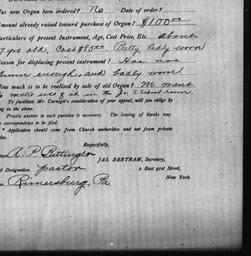 as new Organ been ordered? No Date of order?
mount already raised toward purchase of Organ? $100.00
articulars of present Instrument, Age, Cost Price, Etc. about
7 yrs old, Cost $85.00 Pretty badly worn
eason for displacing present instrument? Has not
enough, and badly worn
ow much is to be realized by sale of old Organ? We want
to make use of it in the Jr. S School room.
To facilitate Mr. Carnegie's consideration of your appeal, will you oblige by
ing in the above.
Precise answer to each question is necessary. The leaving of blanks may
correspondence to be filed.
Application should come from Church authorities and not from private
Respectfully,
A. P. Bittinger JAS. BERTRAM, Secretary,
Designation Pastor 2 East 91st Street,
Rimersburg, Pa. New York